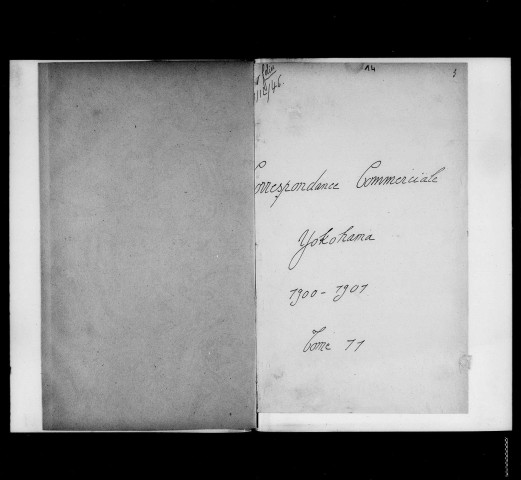 14
3
Correspondance Commerciale
Yokohama
1900-1901
Tome 11